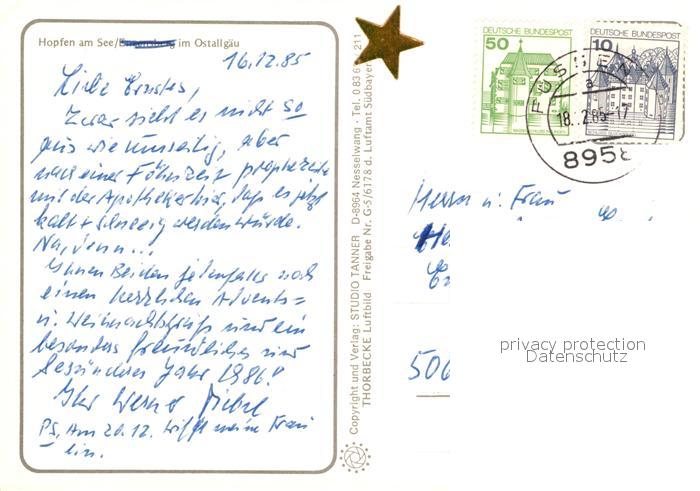 Hopfen am See/ im Ostallgäu
16.12.85
Liebe Ernstes,
Zwar sieht es nicht so
aus wie umseitig, aber
nach einer Föhnzeit prophezeite
mir der Apotheker hier, daß es jetzt
kalt + schneeig werden würde.
Na, denn...
Ihnen Beiden jedenfalls noch
einen herzlichen Advents=
u. Weihnachtsgruß und ein
besonders freundliches und
Jahr 1986!
Ihr Werner
PS. Am 20.12. trifft meine Frau
ein.
Copyright und Verlag: STUDIO TANNER D-8964 Nesselwang · Tel. 0 83 6 211
THORBECKE Luftbild Freigabe Nr. G-5/6178 d. Luftamt Südbayer
DEUTSCHE BUNDESPOST
50
DEUTSCHE BUNDESPOST
10
18.2.85-17
8958
Herrn u. Frau
506
privacy protection
Datenschutz